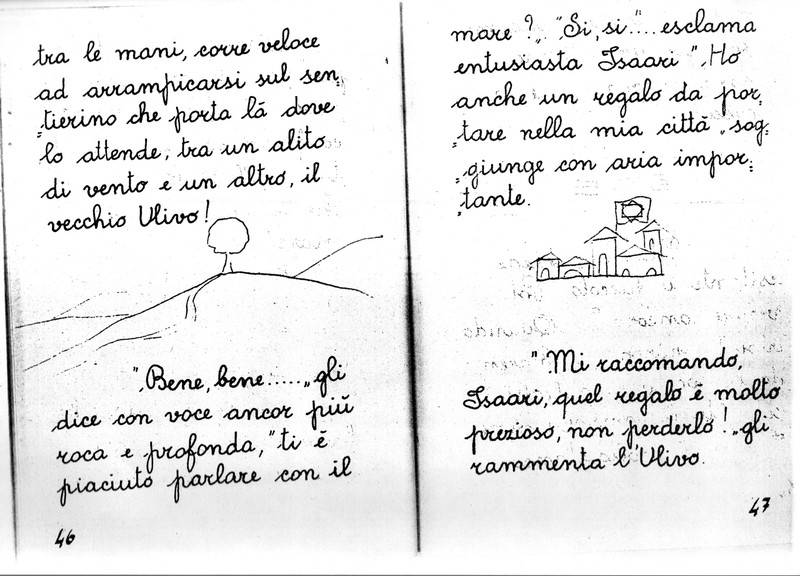 tra le mani, corre veloce
ad arrampicarsi sul sen,
,,tierino che porta là dove
lo attende, tra un alito
di vento e un altro, il
vecchio Ulivo!
",Bene, bene.....„gli
dice con voce ancor più
roca e profonda,"ti è
piaciuto parlare con il
46
mare ?„ "Sì, sì".... esclama
entusiasta Isaari ",Ho
anche un regalo da por,,
,,tare nella mia città „sog,,
,,giunge con aria impor,,
,,tante.
",Mi raccomando,
Isaari, quel regalo è molto
prezioso, non perderlo!„gli
rammenta l'Ulivo.
47